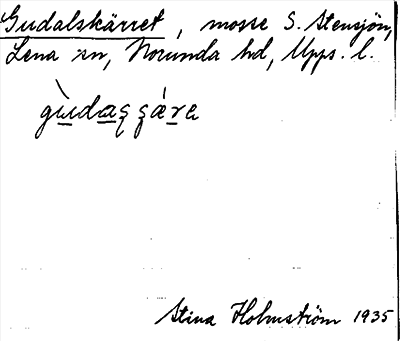 Gudalskärret, mosse S. Stensjön,
Lena sn, Norunda hd, Upps. l.
gùdaʂʂǽre
Stina Holmström 1935